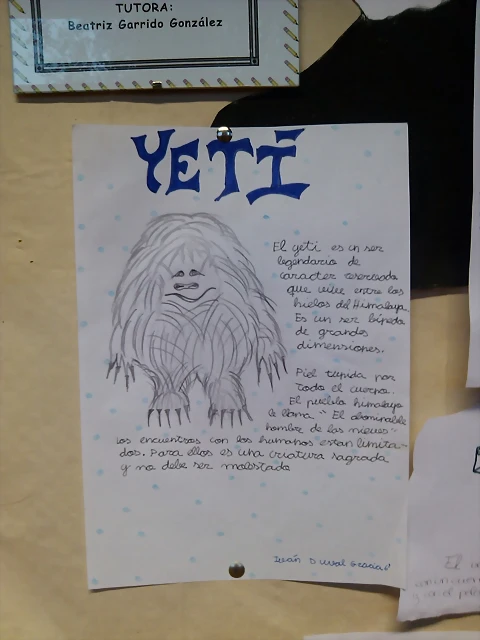 TUTORA:
Beatriz Garrido González
YETI
El yeti es un ser
legendario de
caracter reservado
que vive entre los
hielos del Himalaya.
Es un ser bípedo
de grandes
dimensiones.
Piel tupida por
todo el cuerpo.
El pueblo himalayo
le llama "El abominable
hombre de las nieves"
Los encuentros con los humanos estan limita-
dos. Para ellos es una criatura sagrada
y no debe ser molestada
Iván
El